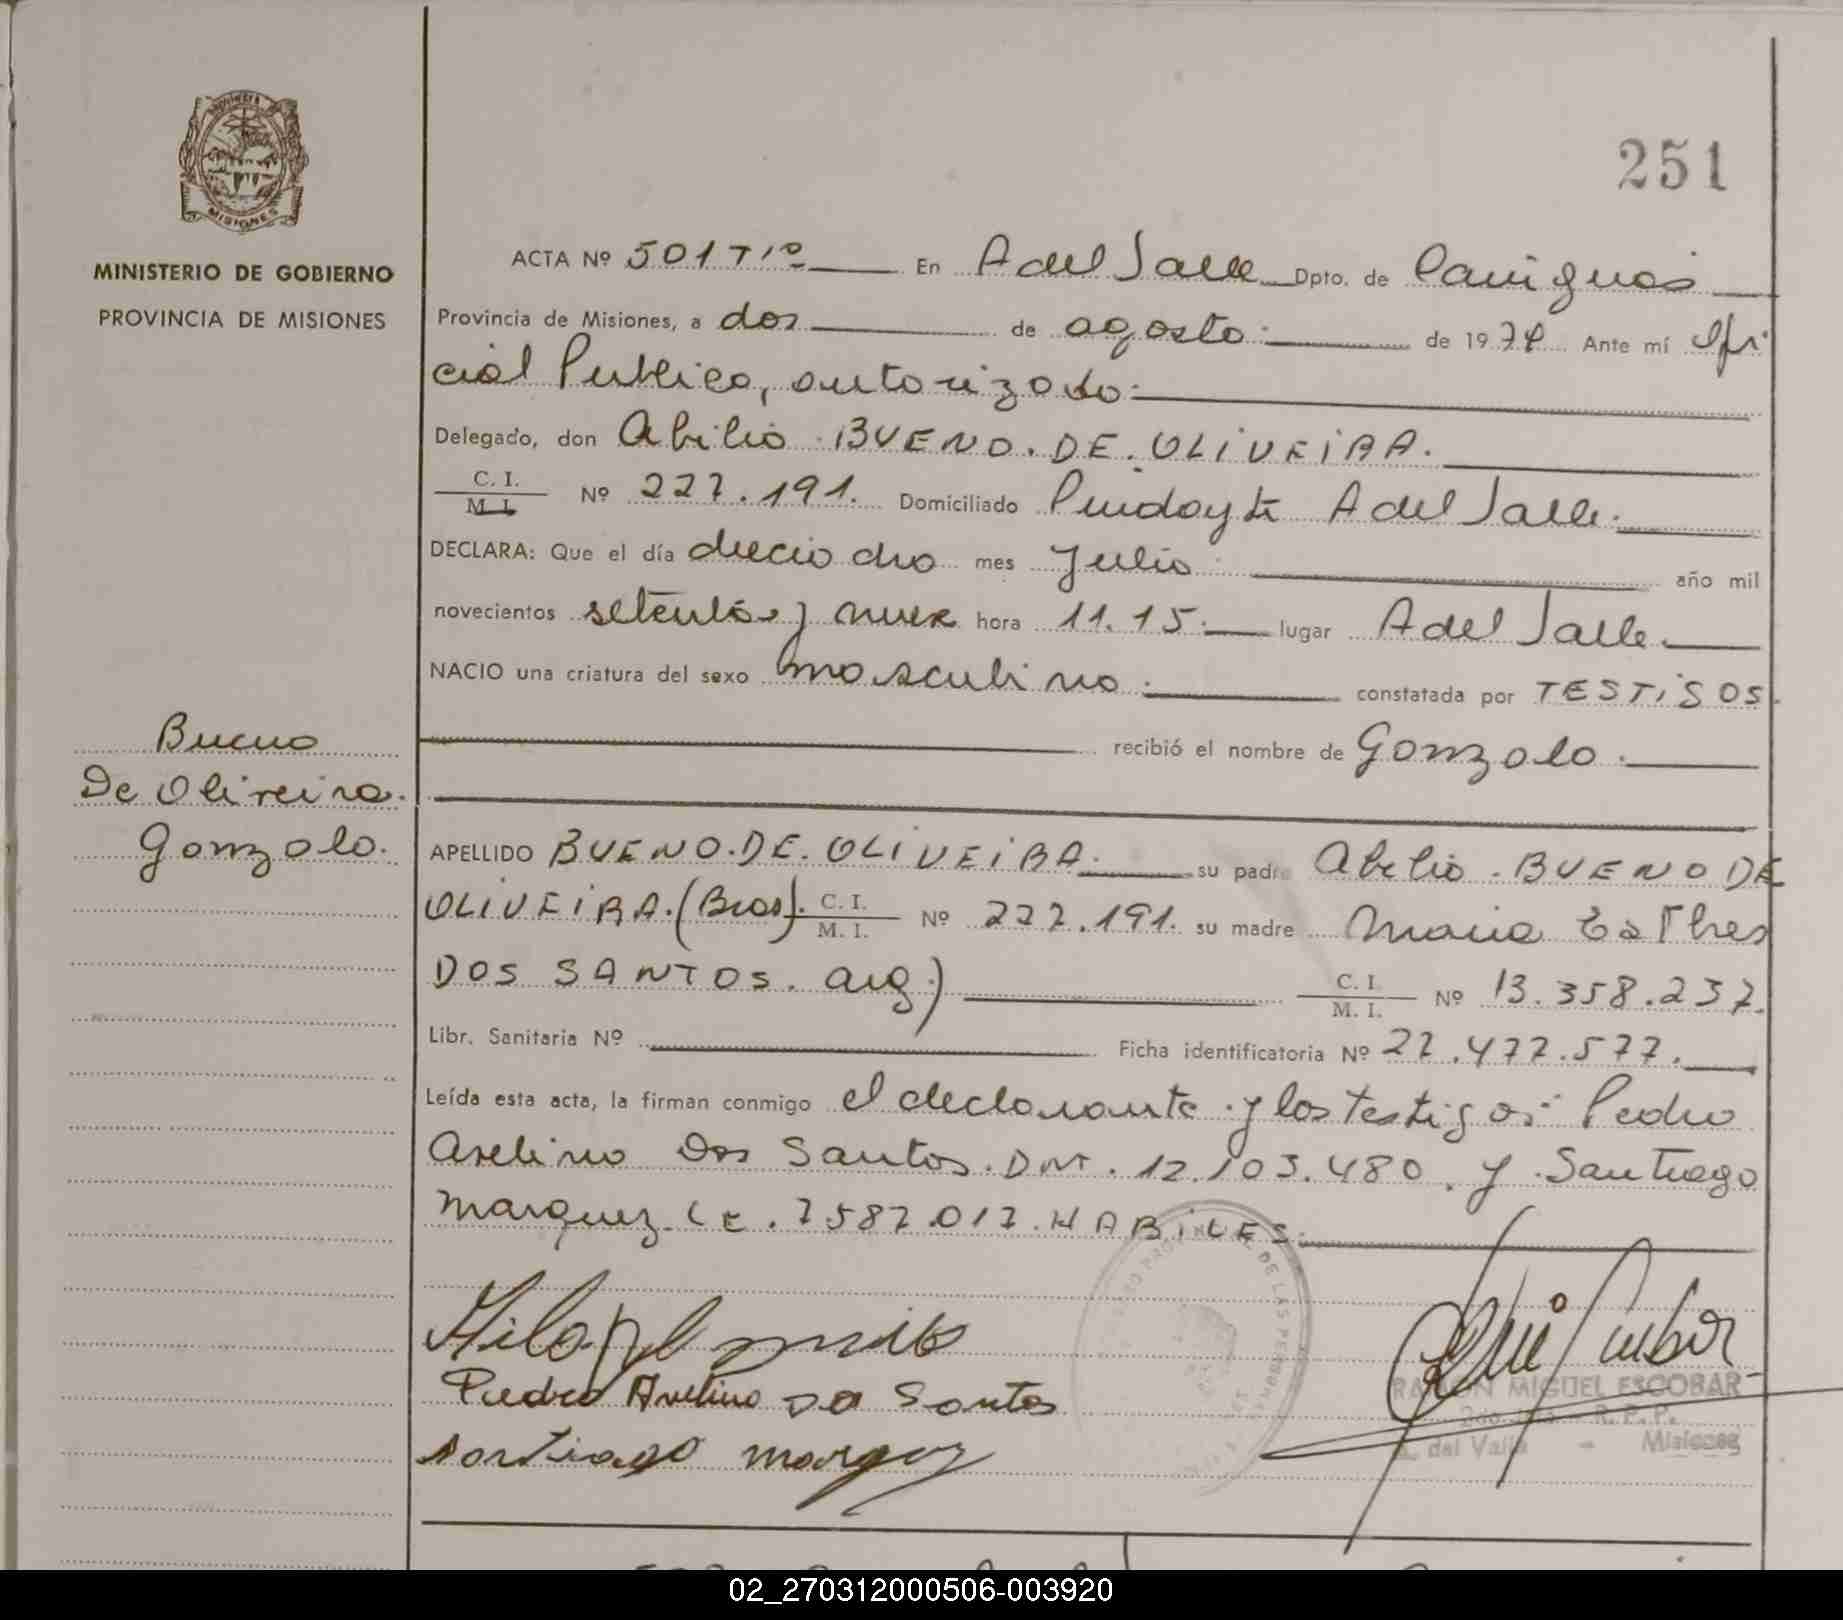 251
MISIONES
MINISTERIO DE GOBIERNO
PROVINCIA DE MISIONES
ACTA Nº 501 Tº En A del Valle Dpto. de Cainguas
Provincia de Misiones, a dos de agosto de 1979 Ante mí Ofi
cial Publico, autorizado
Delegado, don Abilio BUENO. DE. OLIVEIRA.
C. I.
M. I. Nº 227.191. Domiciliado Pindayti A del Valle.
DECLARA: Que el día dieciocho mes Julio año mil
novecientos setenta y nueve hora 11.15. lugar A del Valle.
NACIO una criatura del sexo masculino. constatada por TESTIGOS.
recibió el nombre de Gonzalo.
Bueno
De Oliveira.
Gonzalo.
APELLIDO BUENO. DE. OLIVEIRA. su padre Abilio. BUENO DE
OLIVEIRA. (Bras). C. I. M. I. Nº 227.191. su madre Maria Esther
DOS SANTOS. arg.) C. I. M. I. Nº 13.358.237.
Libr. Sanitaria Nº Ficha identificatoria Nº 27.477.577.
Leída esta acta, la firman conmigo el declarante y los testigos: Pedro
Avelino Dos Santos. DNI. 12.103.480. y Santiago
Marquez. LE. 7587.017. HABILES.
Pedro Avelino Do Santos
Santiago Marquez
RAMON MIGUEL ESCOBAR
R. P. P.
A. del Valle - Misiones
02_270312000506-003920